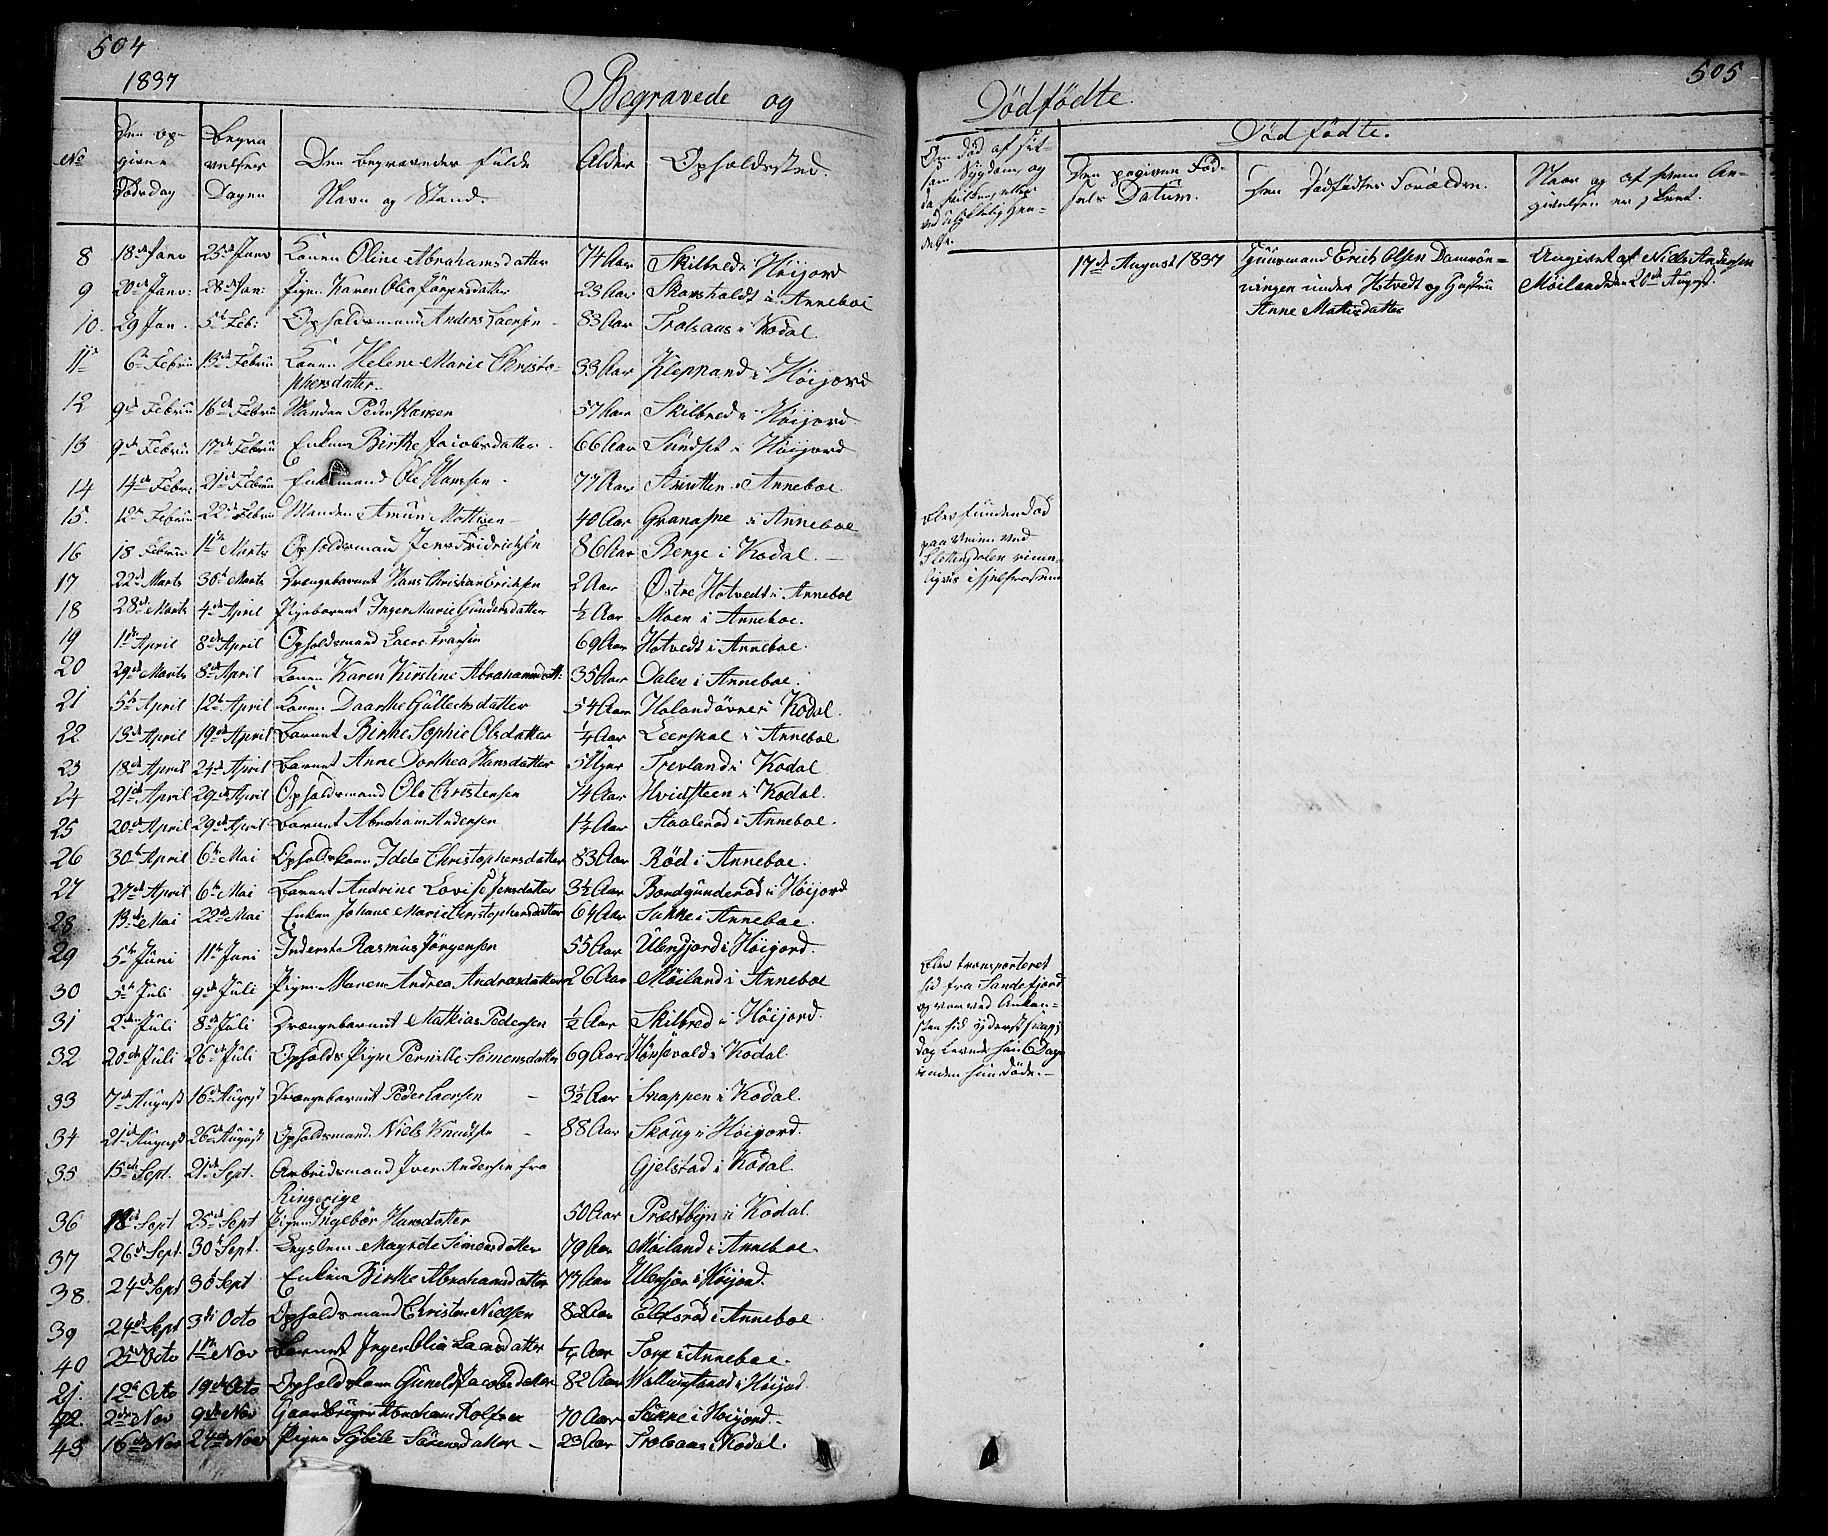 504
1837
Begravede og
No
Den op-
givne
Dødsdag
Begra
velses
Dagen
Den begravedes fulde
Navn og Stand.
Alder
Opholdssted.
8 18de Janv 25de Janv Konen Oline Abrahamsdatter 74 Aar Skilbred i Höijord
9 20de Janv: 28de Jan: Pigen Karen Olia Jörgensdatter 23 Aar Skarsholdt i Anneboe
10. 29 Jan. 5te Feb: Opholdsmand Anders Laersen 83 Aar Trolsaas i Kodal.
11 6te Februü 13de Februü Konen Helene Marie Christo-
phersdatter. 33 Aar Kleppand i Höijord
12 9de Februü 16de Februü Manden Peder Hansen 57 Aar Skilbred i Höijord
13 9de Februü 17de Februü Enken Birthe Jacobsdatter 66 Aar Sundset i Höijord
14 14de Febr: 21de Februü Enkemand Ole Hansen 77 Aar i Anneboe
15. 12te Februü 22de Februü Manden Amün Mattisen 40 Aar Granasne i Anneboe
16 18 Februü 1te Marts Opholdsmand Jens Fridrichsen 86 Aar Berge i Kodal.
17 22de Marts 30te Marts Drengebarnet Hans Christian Eriksen 2 Aar Østre Hotvedt i Anneboe
18 28de Marts 4de April Pigebarnet Inger Marie Gündersdatter ½ Aar Moen i Anneboe.
19 1te April 8de April Opholdsmand Laers Fransen 69 Aar Hotvedt i Anneboe.
20 29de Marts 8de April Konen Karen Kirstine Abrahamsdatt: 35 Aar Dalen i Anneboe.
21 5te April 12te April Konen Daarthe Güllechsdatter 54 Aar Holand övre i Kodal.
22 13de April 19de April Barnet Birthe Sophie Olsdatter ¼ Aar Leerskal i Anneboe
23 18de April 24de April Barnet Anne Dorthea Hansdatter 5 Uger Trevland i Kodal
24 21de April 29de April Opholdsmand Ole Christensen 74 Aar Hvidsteen i Kodal.
25 20de April 29de April Barnet Abraham Andersen 1¼ Aar Haalerød i Anneboe.
26 30te April 6te Mai Opholdskone Idde Christophersdatter 83 Aar Röd i Anneboe.
27 27de April 6te Mai Barnet Andrine Lovise Jensdatter 3½ Aar Bondgunderød i Höijord
28 13de Mai 22de Mai Enken Johane Marie Christophersdatter 64 Aar Sukke i Anneboe.
29 5te Jüni 11te Juni Inderste Rasmus Jörgensen 55 Aar Ülensjord i Höijord
30 5te Juli 9de Juli Pigen Maren Andrea Andreasdatter 26 Aar Möiland i Anneboe
31 2den Juli 8de Juli Drengebarnet Mathias Pedersen ½ Aar Skilbred i Höijord.
32 20de Juli 26de Juli Opholds Pigen Pernille Simensdatter 69 Aar Hønsevald i Kodal
33 7de August 16de August Drengebarnet Peder Laersen 3½ Aar Snappen i Kodal.
34 21de August 26de August Opholdsmand Niels Knudsen 88 Aar Skoug i Höijord.
35 15de Sept. 21de Sept. Arbeidsmand Iver Andersen fra
Ringerige Gjelstad i Kodal
36 18de Sept 25de Sept Pigen Ingebör Hansdatter 50 Aar Præstbyen i Kodal.
37 26de Sept. 30te Sept. Magrete Simensdatter 79 Aar Möiland i Anneboe.
38 24de Sept 30 Sept Enken Birthe Abrahamsdatter 77 Aar Ulensjor i Höijord.
39 24de Sept 3die Octo Opholdsmand Christen Nielsen 82 Aar i Anneboe.
40 25de Octo 1te Nov Barnet Inger Olia Laersdatter ¼ Aar Torp i Anneboe.
21. 12te Octo 19de Octo Opholdskone Güneld Jacobsdatter 82 Aar i Höijord
42. 2den Nov 9de Nov Gaardbruger Abraham Rolfsen 70 Aar Sukke i Höijord.
43 16de Nov 24de Nov Pigen Sybile Sörensdatter 23 Aar Trolsaas i Kodal.
505
Dödfödte.
Om död af hit-
som Sygdom, og
da hvilken, eller
ved ulykkelig Hen-
delse.
Död födte.
Den opgivne Föd-
sels Datum.
Den Dödfödtes Forældre.
Naar og af hvem An-
givelsen er skeet.
17de August 1837
Huusmand Erich Olsen Damrön-
ningen under Hotvedt og Hustru
Anne Mathisdatter
Angivet af Niels Andersen
Möiland den 26de August.
blev funden död
paa Veien ved
Slettesdalen
blev transporteret
hid fra Sandefjord
og var ved Ankom-
sten hid yderst svag;
dog levede hun 6 Dage
inden hun döde.